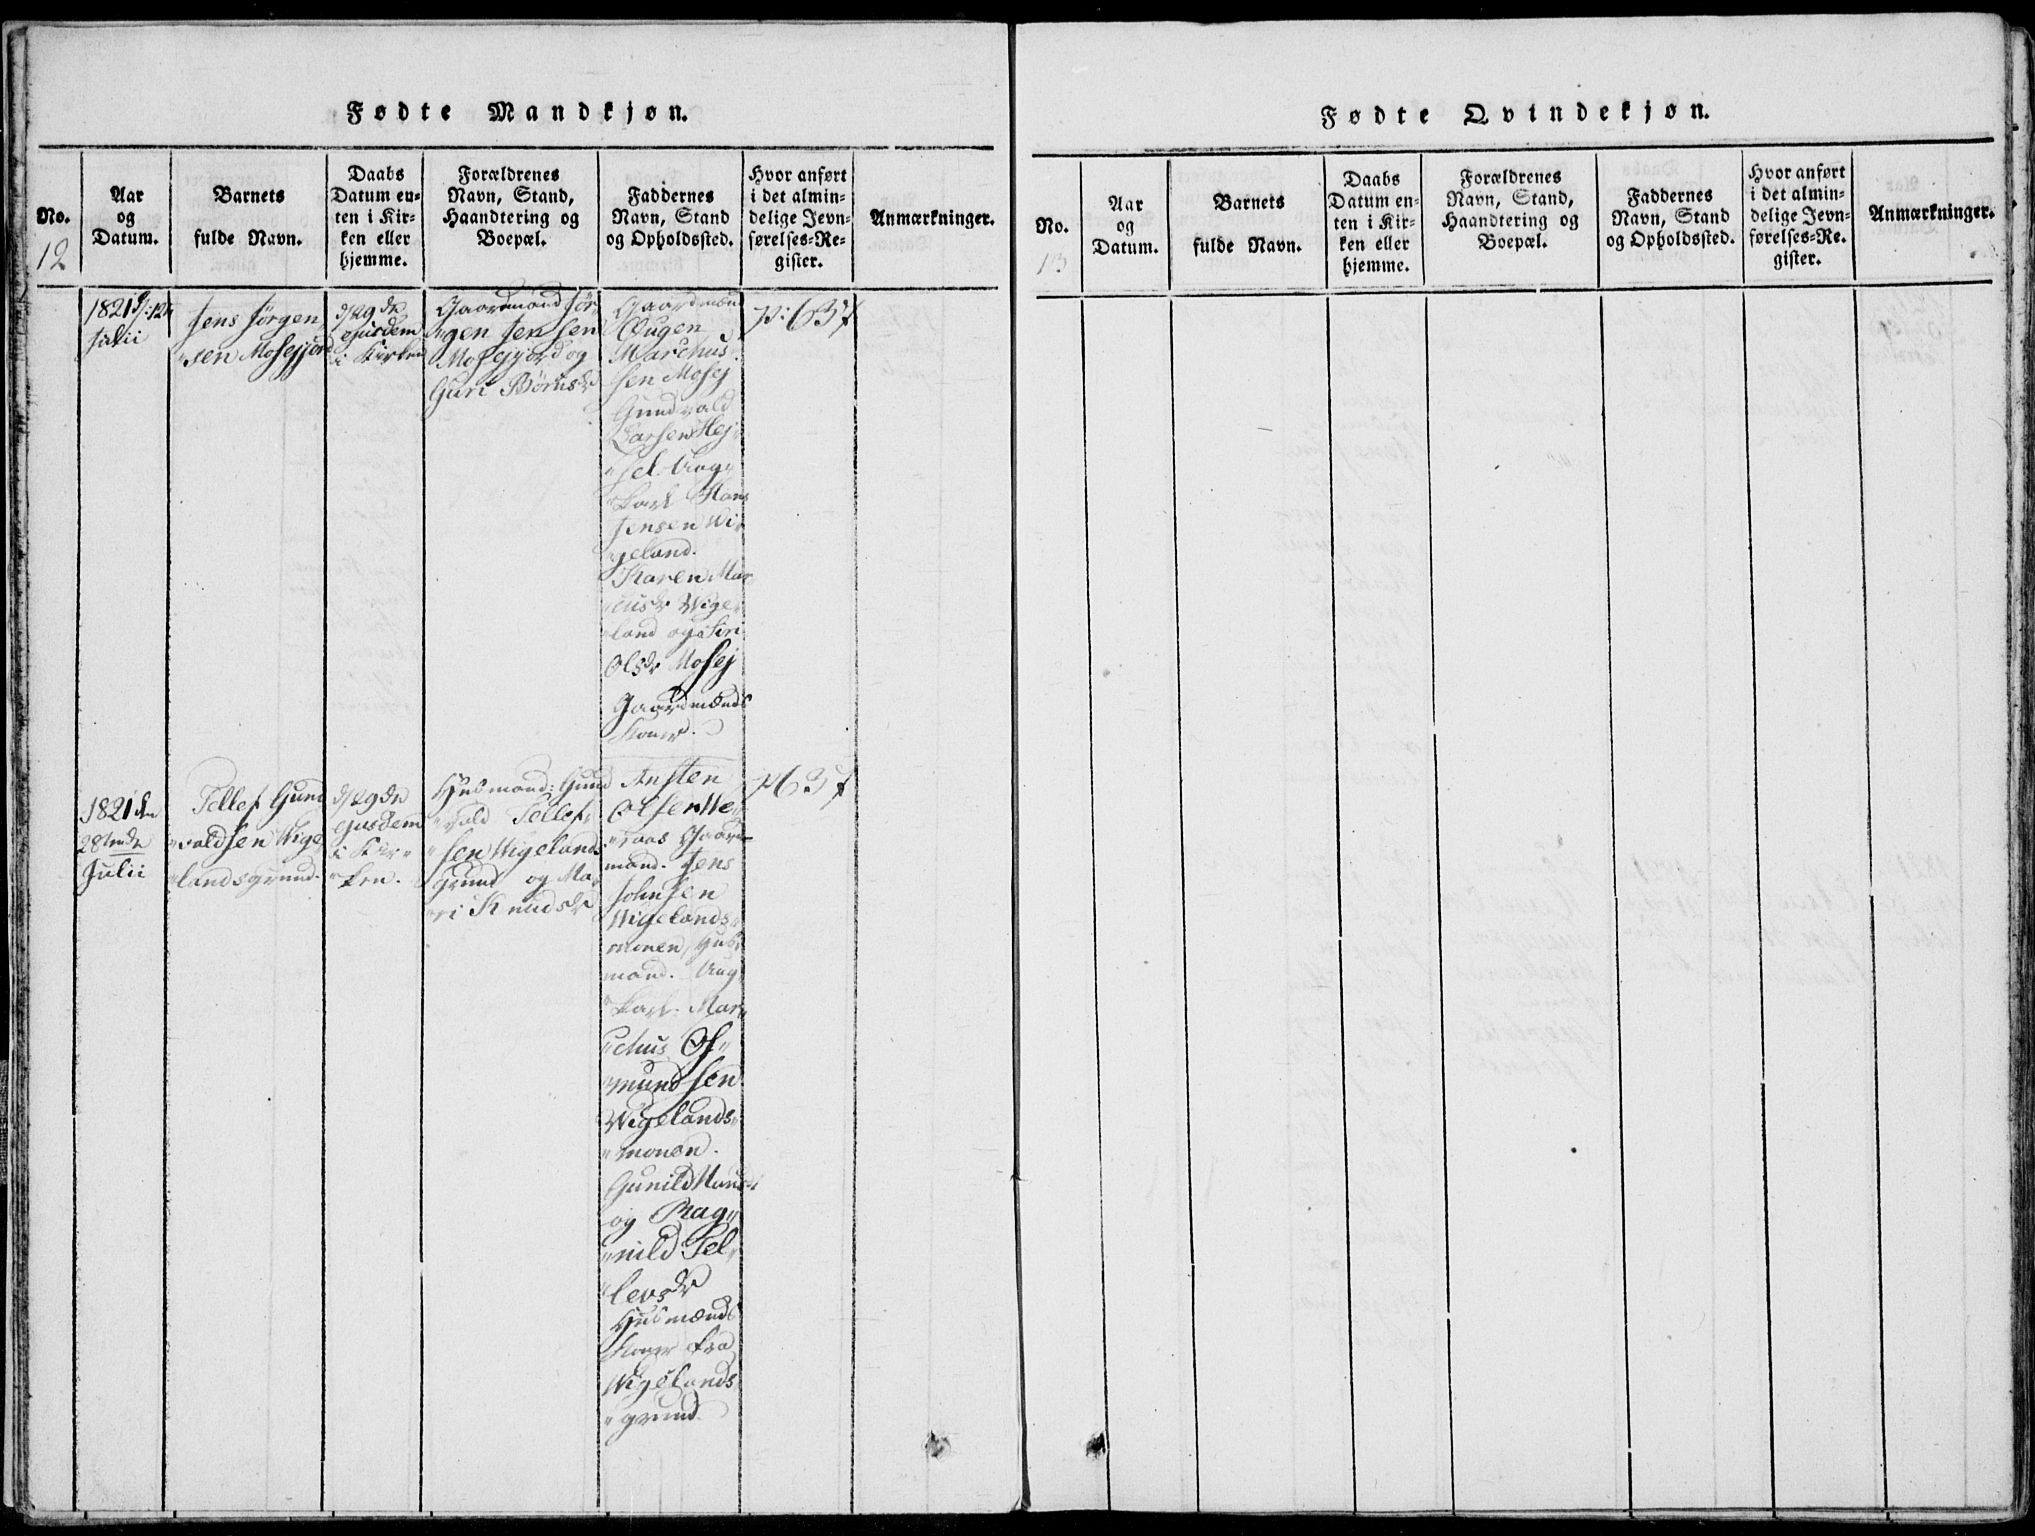 Fødte Mandkjøn.
No.
12
Aar
og
Datum.
Barnets
fulde Navn.
Daabs
Datum en-
ten i Kir-
ken eller
hjemme.
Forældrenes
Navn, Stand,
Haandtering og
Boepæl.
Faddernes
Navn, Stand
og Opholdssted.
Hvor anført
i det almin-
delige Jevn-
førelses-Re-
gister.
Anmærkninger.
1821
Julii
Jens Jørgen
"sen Mosejjord
d/29de
ejusdem
i Kirken
Gaardmand Jør-
"gen Jensen
Mosejjord og
Guri Børusdr
Gaardmænd
Ougen
Marchus
sen Mosej
Gundvald
Larsen Hej
"sel Ung
karl Hans
Jensen Wi
"geland.
Karen Mar
"cusdr Wige
"land og Siri
Olsdr Mosej
Gaardmænds
Koner.
p: 637
1821 den
28tende
Julii
Tellef Gund
"valdsen Wige
"landsgrund.
d/29de
ejusdem
i Kir"
"ken.
Husmand: Gund
"vald Tellef
"sen Wigelands
Grund og Ma
"ri Knudsdr
Ansten
Olsen We
"raas Gaard
mand. Jens
Johnsen
Wigelands
monen, Hus
mand. Ung
"karl. Mar
"chus Os"
"mundsen
Wigelands
"monen.
Gunild
og Rag
"nild Tel
"levsdr
Husmænds
Koner fra
Wigelands
"grund.
p 637
Fødte Qvindekjøn.
No.
13
Aar
og
Datum.
Barnets
fulde Navn.
Daabs
Datum en-
ten i Kir-
ken eller
hjemme.
Forældrenes
Navn, Stand,
Haandtering og
Boepæl.
Faddernes
Navn, Stand
og Opholdssted.
Hvor anført
i det almin-
delige Jevn-
førelses-Re-
gister.
Anmærkninger.